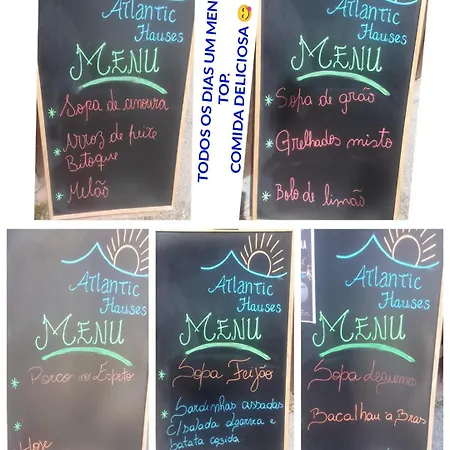 ATLANTIC
Hauses
MENU
* Sopa de cenoura
* Arroz de peixe
Bitoque
* Melão
TODOS OS DIAS UM MEN
TOP.
COMIDA DELICIOSA
ATLANTIC
Hauses
MENU
* Sopa de grão
* Grelhados misto
* Bolo de limão
ATLANTIC
Hauses
MENU
* Porco no Espeto
Hoje
ATLANTIC
Hauses
MENU
* Sopa Feijão
* Sardinhas assadas
c/salada algarvia e
batata cozida
ATLANTIC
Hauses
MENU
Sopa Legumes
Bacalhau a, Bras